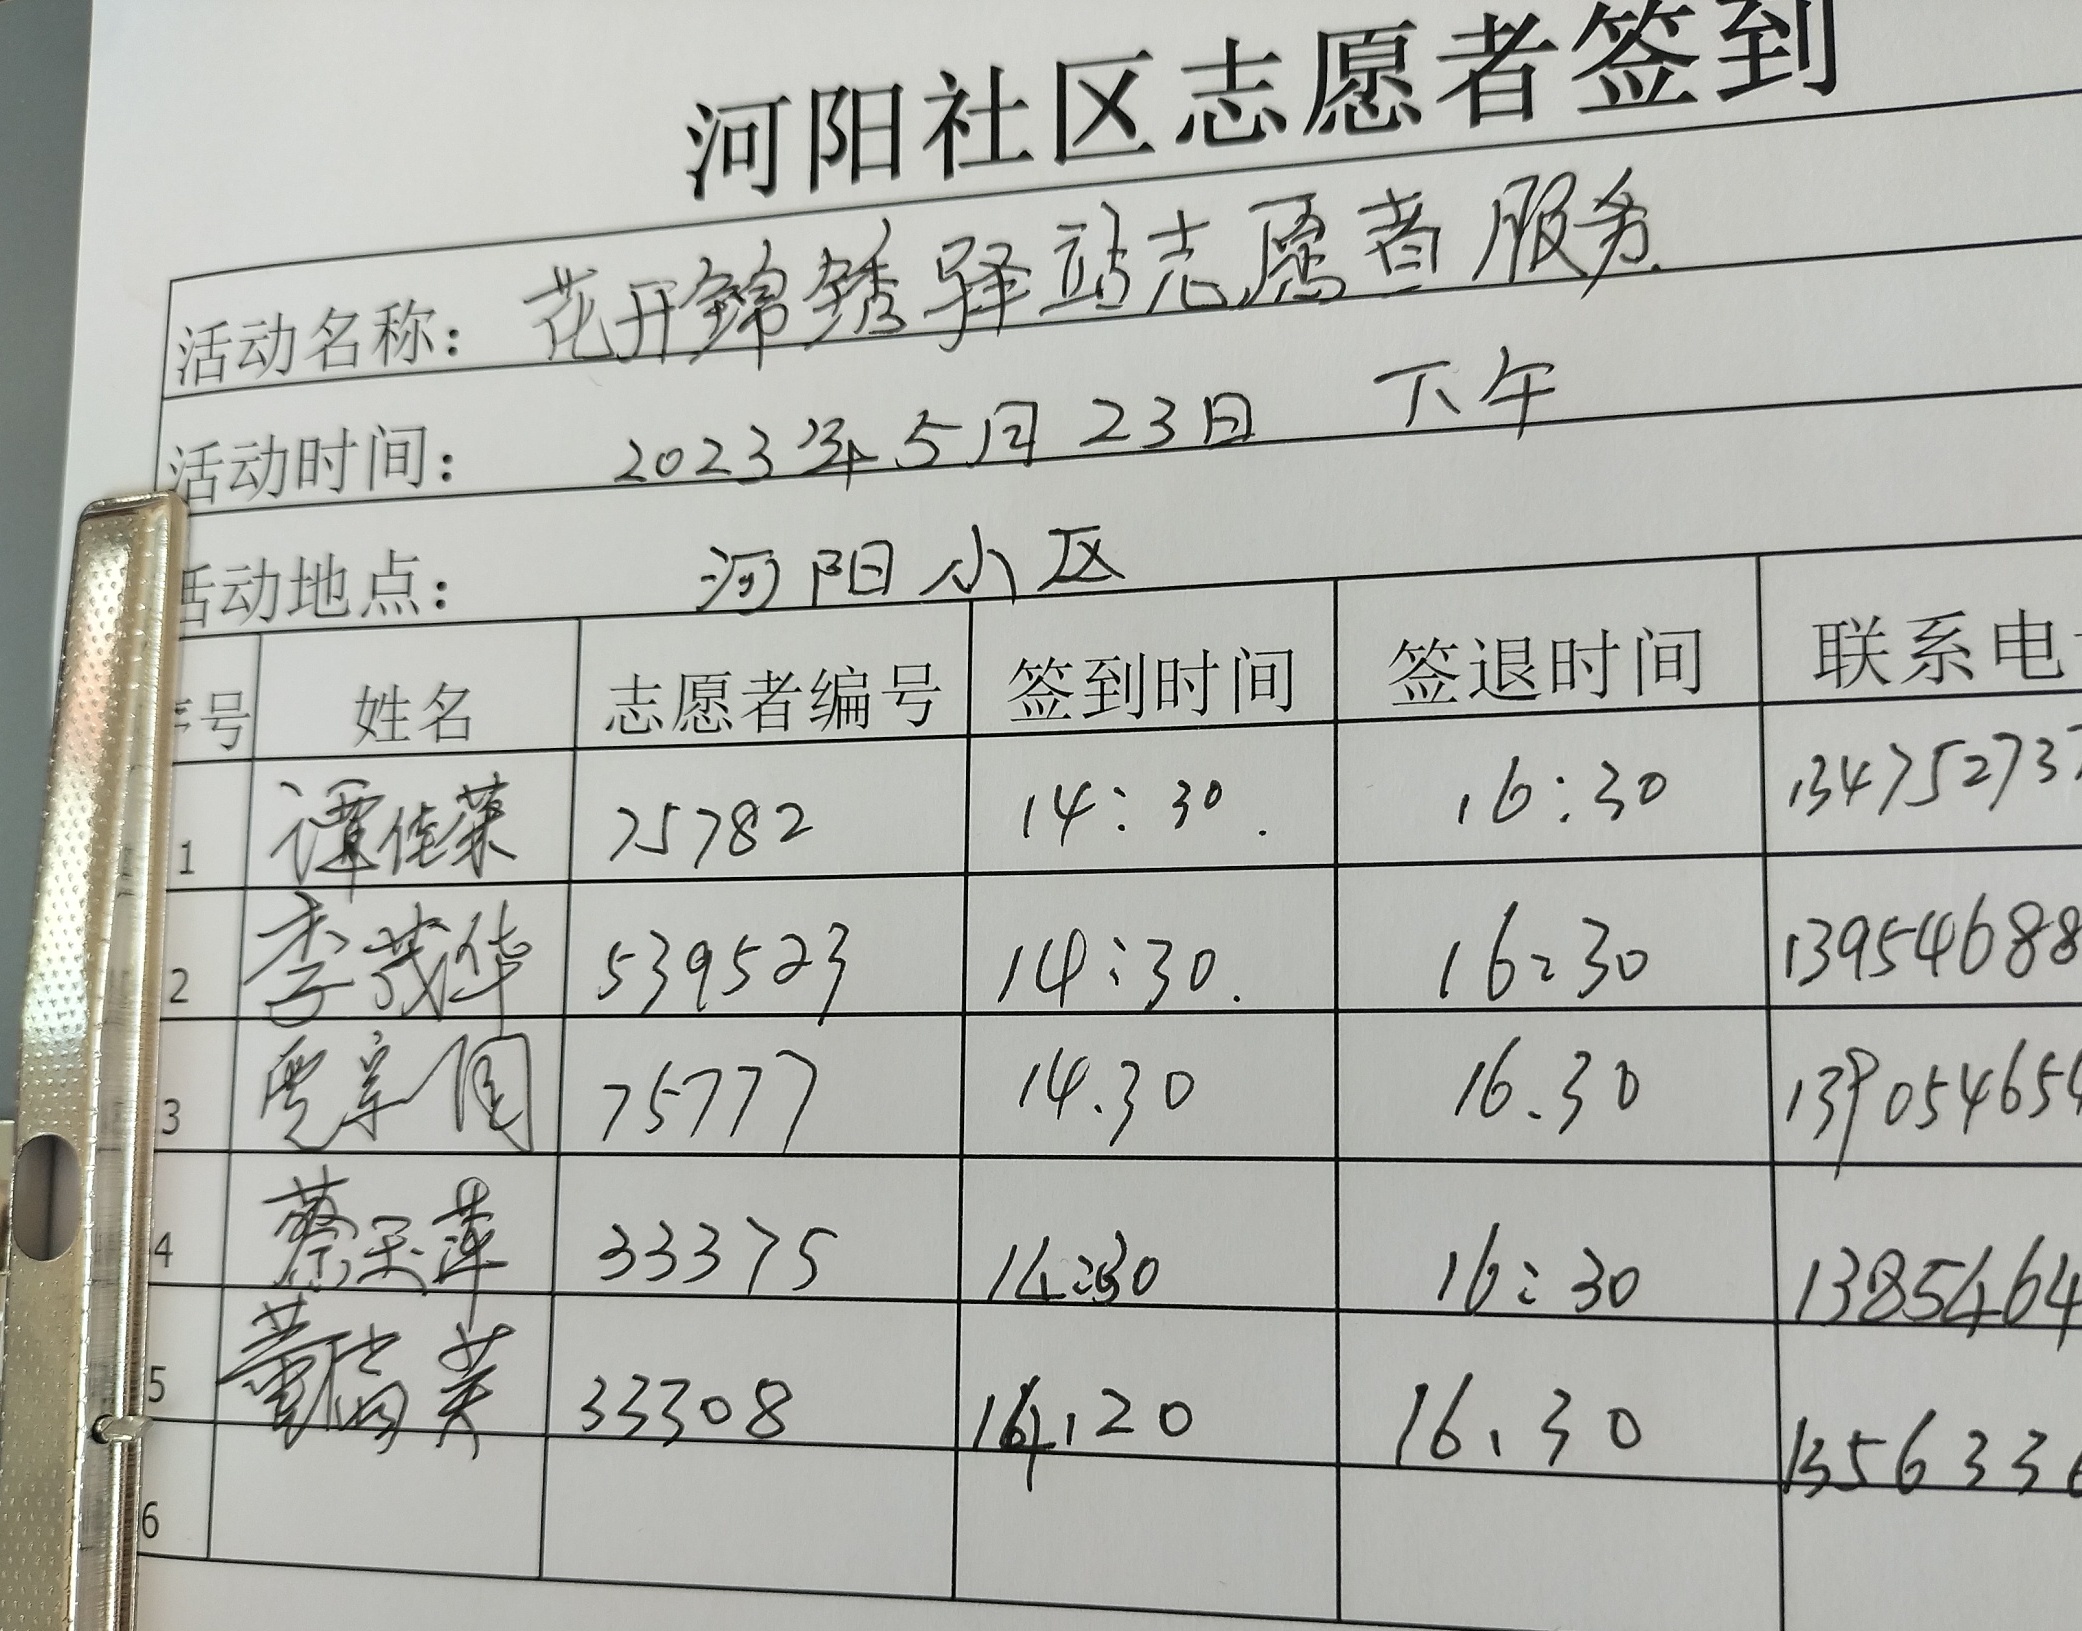 河阳社区志愿者签到
活动名称： 花开錦绣驿站志愿者服务
活动时间： 2023年5月23日 下午
活动地点： 河阳小区
号 姓名 志愿者编号 签到时间 签退时间 联系电
1 谭佳菜 75782 14:30. 16:30 134752737
2 李茂华 539523 14:30. 16:30 13954688
3 贾 75777 14.30 16.30 139054654
4 蔡玉萍 33375 14:30 16:30 1385464
5 董尚英 33308 14.20 16.30 1356336
6